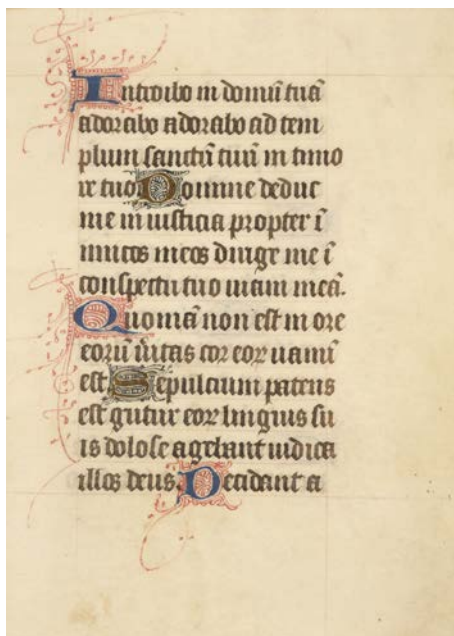 Introibo in domū tuā
adorabo adorabo ad tem
plum sanctū tuū in timo
re tuo Domine deduc
me in iusticia propter ī
imicos meos dirige me ī
conspectu tuo uiam meā.
Quoniā non est in ore
eorū ūitas cor eoꝝ uanū
est Sepulcrum patens
est gutur eoꝝ linguis su
is dolose agebant iudica
illos deus Decidant a